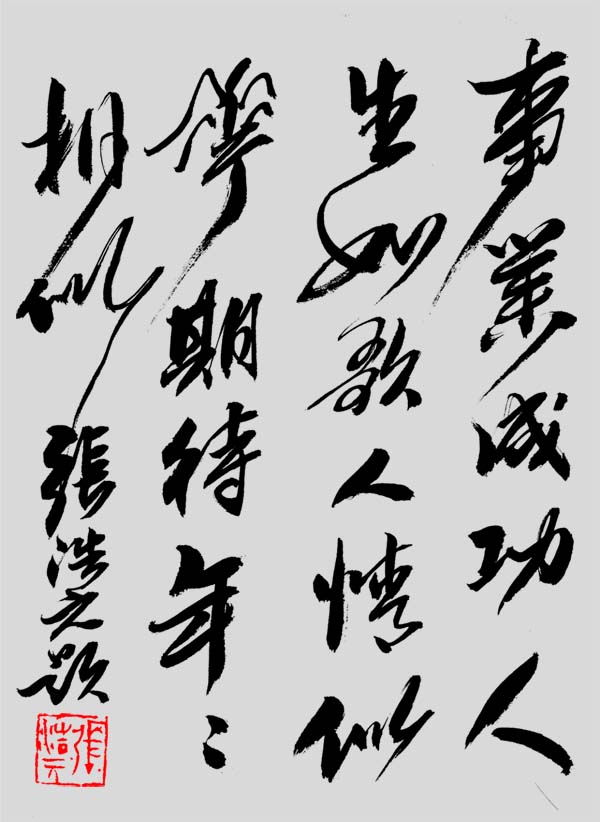 事業成功人
生如歌人情似
期待年〻
相似
張浩元題
張浩元